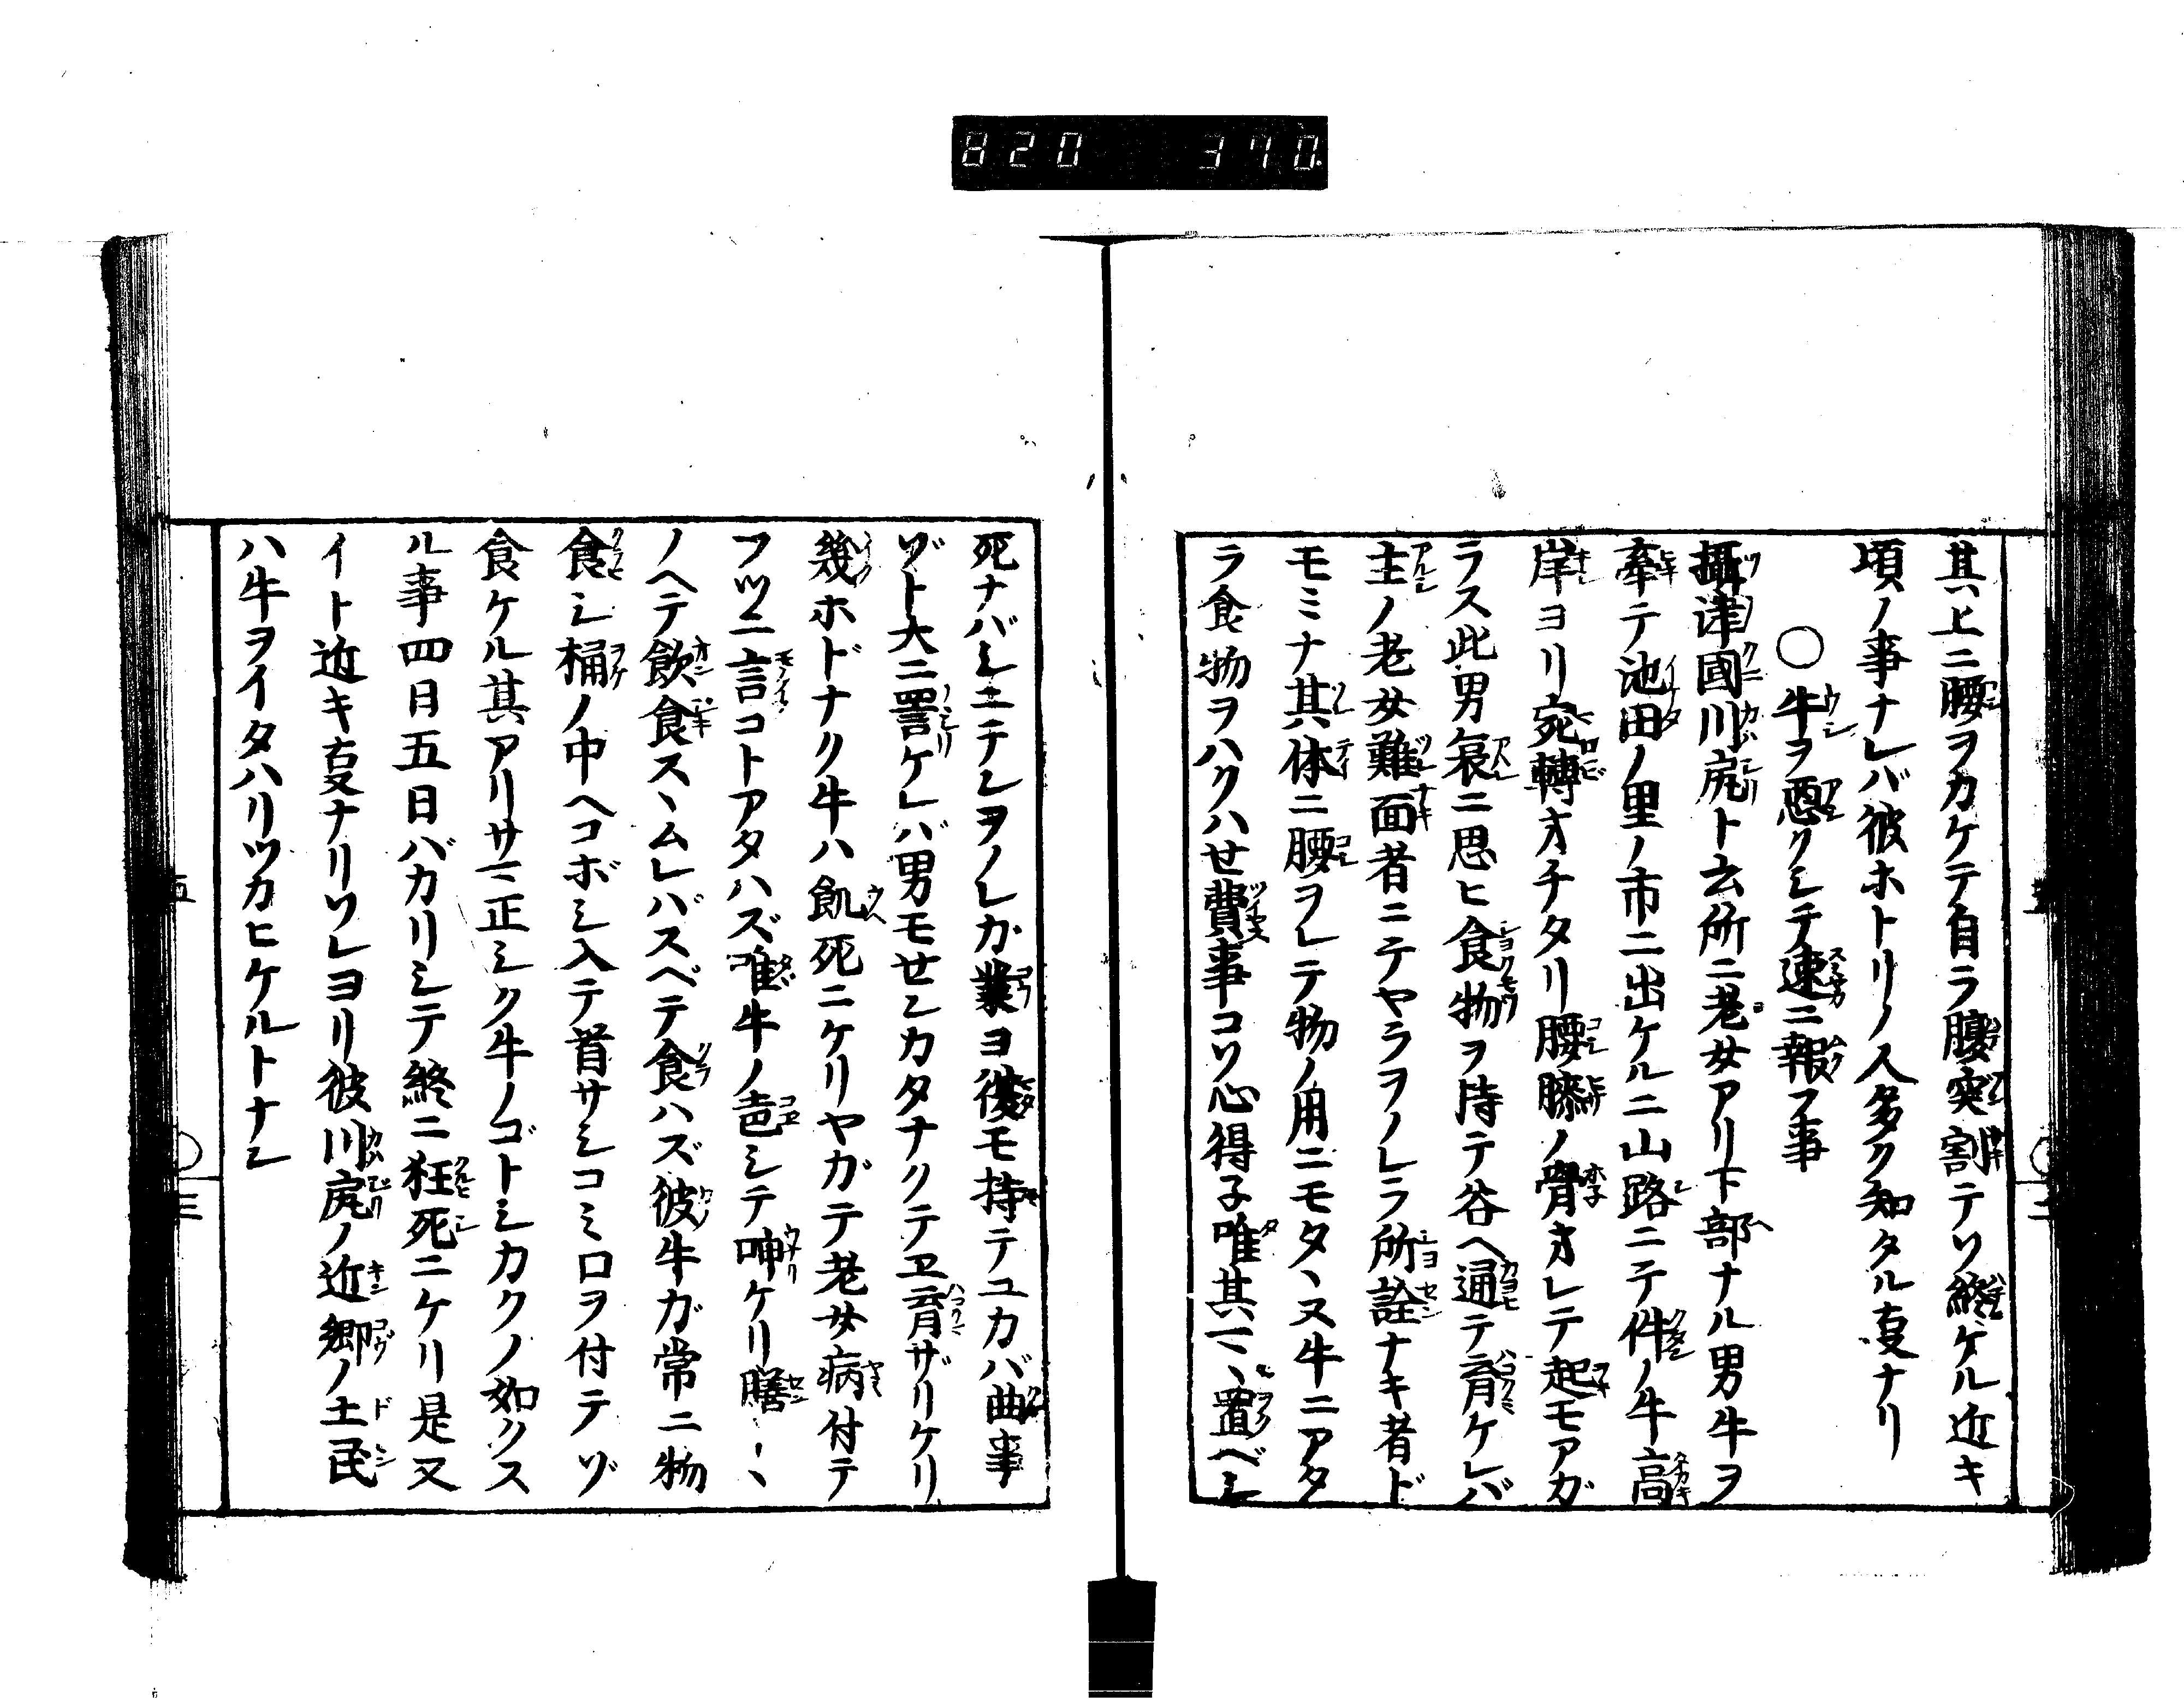 820 370.
其上ニ腰ヲカケテ自ラ腹突割テソ終ケル近キ
頃ノ事ナレバ彼ホトリノ人多ク知タル叓ナリ
〇牛ヲ悪クシテ速ニ報フ事
攝津國川尻ト云所ニ老女アリ下部ナル男牛ヲ
牽テ池田ノ里ノ市ニ出ケルニ山路ニテ件ノ牛高
岸ヨリ宛轉オチタリ腰膝ノ骨オレテ起モアガ
ラス此男哀ニ思ヒ食物ヲ持テ谷ヘ通テ育ケレバ
主ノ老女難面者ニテヤラヲノレラ所詮ナキ者ド
モミナ其体ニ腰ヲレテ物ノ用ニモタヽヌ牛ニアタ
ラ食物ヲハクハせ費事コソ心得子唯其マヽ置ベシ
死ナバシニテレヲノレカ業ヨ後モ持テユカバ曲事
ゾト大ニ詈ケレバ男モせンカタナクテヱ育ザリケリ
幾ホドナク牛ハ飢死ニケリヤガテ老女病付テ
フツニ言コトアタハズ唯牛ノ声シテ呻ケリ膳ヽヽ
ノヘテ飲食スヽムレバスベテ食ハズ彼牛ガ常ニ物
食シ桶ノ中ヘコボシ入テ首サシコミ口ヲ付テゾ
食ケル其アリサマ正シク牛ノゴトシカクノ如クス
ル事四月五日バカリシテ終ニ狂死ニケリ是又
イト近キ叓ナリソレヨリ彼川尻ノ近郷ノ土民
ハ牛ヲイタハリツカヒケルトナン
五
三